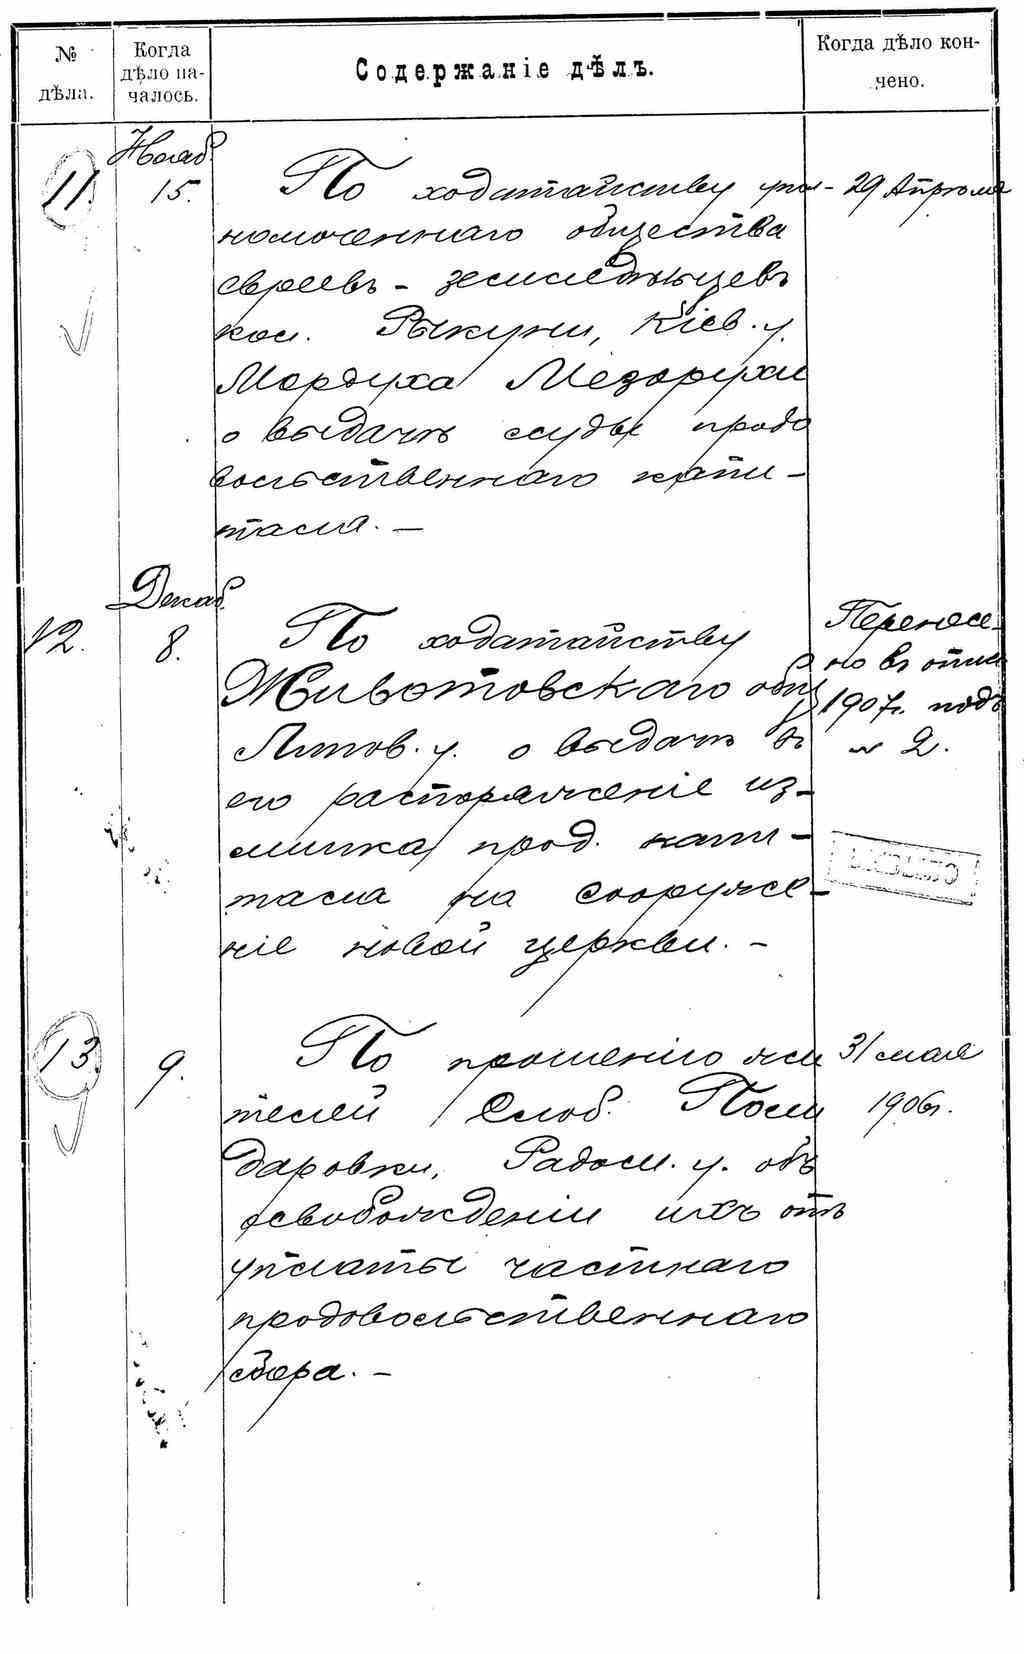 № дѣла.
Когда дѣло на-
чалось.
Содержаніе дѣлъ.
Когда дѣло кон-
чено.
11.
Нояб.
15.
По ходатайству упол-
номоченнаго общества
евреевъ - земледѣльцевъ
кол. Рыкуни, Кіев. у.
Мордуха
о выдачѣ ссуды продо
вольственнаго капи-
тала. -
29 Апрѣля
12.
Декаб.
8.
По ходатайству
Животовскаго общ
Липов. у. о выдачѣ въ
его распоряженіе из-
лишка прод. капи-
тала на сооруже-
ніе новой церкви. -
Перенесе-
но въ опись
1907г. подъ
№ 2.
13.
9.
По прошенію жи
телей Слоб.
Радом. у. объ
освобожденіи ихъ отъ
уплаты частнаго
продовольственнаго
сбора. -
31 мая
1906г.